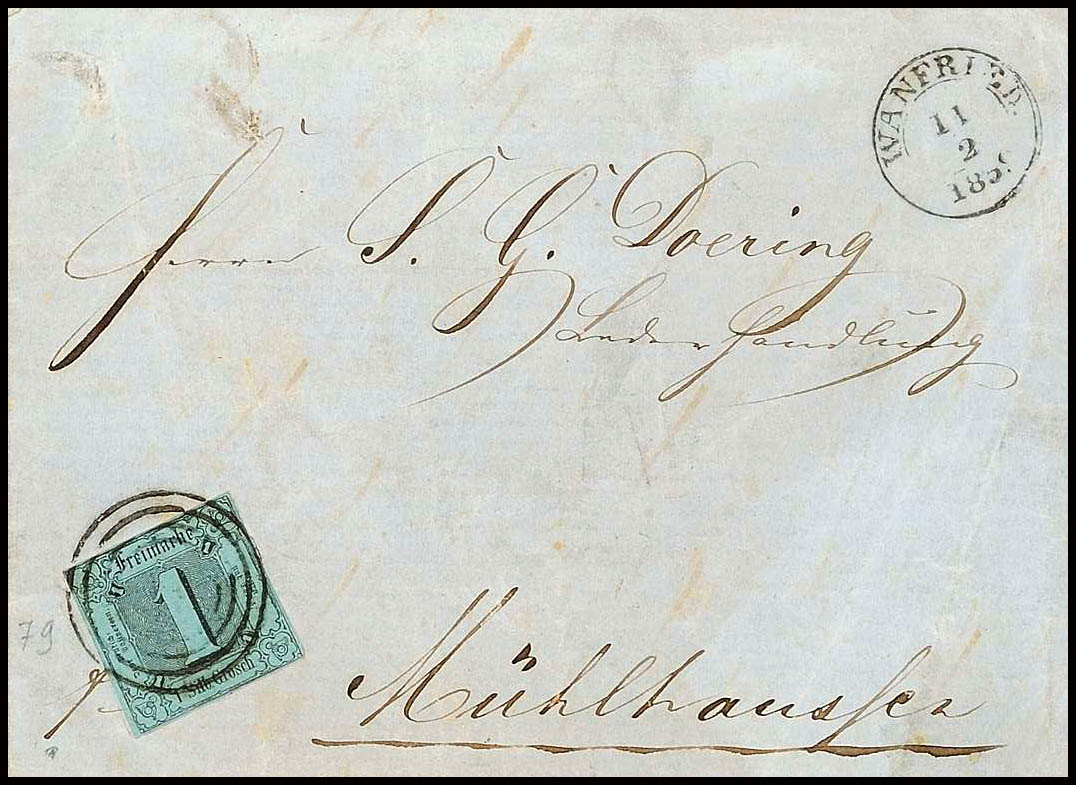 WANFRIED.
11
2
185
Herrn S. G. Doering
Lederhandlung
79
Freimarke
1
1 Silb. Grosch
Mühlhaussen